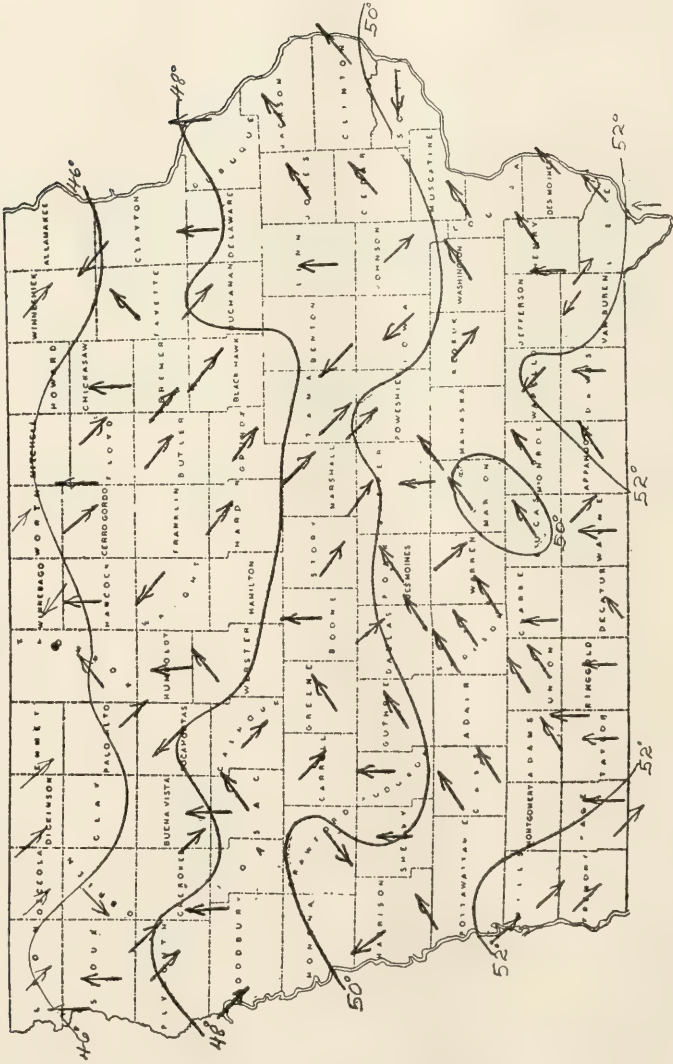 46°
OSCEOLA
DICKINSON
EMMET
WINNEBAGO
WORTH
MITCHELL
HOWARD
WINNESHIEK
ALLAMAKEE
46°
SIOUX
CLAY
PALO ALTO
HANCOCK
CERRO GORDO
FLOYD
CHICKASAW
CLAYTON
48°
PLYMOUTH
CHEROKEE
BUENA VISTA
POCAHONTAS
HUMBOLDT
FRANKLIN
BUTLER
BREMER
FAYETTE
48°
WOODBURY
SAC
WEBSTER
HAMILTON
HARDIN
GRUNDY
BLACK HAWK
BUCHANAN
DELAWARE
DUBUQUE
50°
MONONA
CRAWFORD
CARROLL
GREENE
BOONE
STORY
MARSHALL
TAMA
BENTON
LINN
JONES
JACKSON
CLINTON
50°
HARRISON
SHELBY
GUTHRIE
DALLAS
POLK
DES MOINES
POWESHIEK
IOWA
JOHNSON
CEDAR
MUSCATINE
52°
POTTAWATTAMIE
CASS
ADAIR
MADISON
WARREN
MARION
MAHASKA
KEOKUK
WASHINGTON
50°
MILLS
MONTGOMERY
ADAMS
UNION
CLARKE
LUCAS
MONROE
WAPELLO
JEFFERSON
HENRY
DES MOINES
52°
PAGE
TAYLOR
RINGGOLD
DECATUR
WAYNE
APPANOOSE
DAVIS
VAN BUREN
LEE
52°
52°